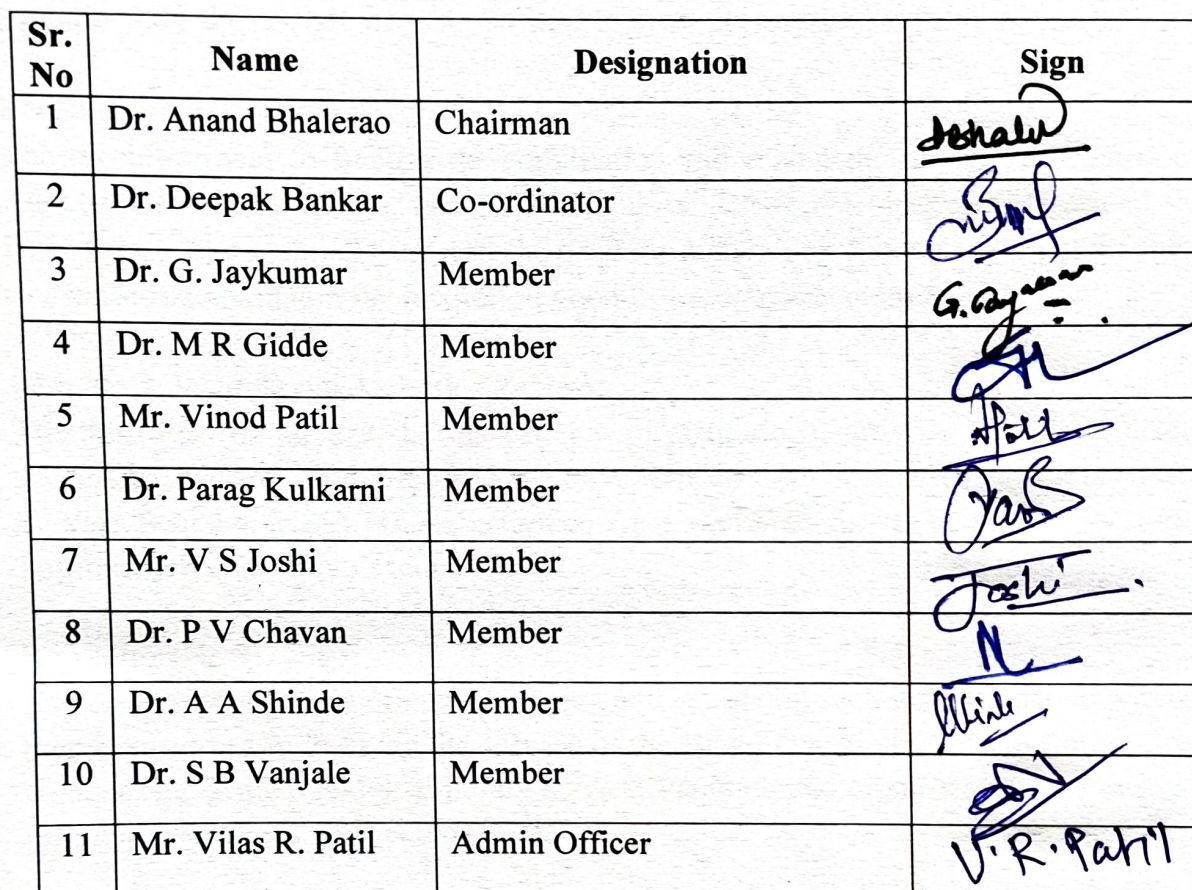 Sr. No Name Designation Sign
1 Dr. Anand Bhalerao Chairman
2 Dr. Deepak Bankar Co-ordinator
3 Dr. G. Jaykumar Member
4 Dr. M R Gidde Member
5 Mr. Vinod Patil Member
6 Dr. Parag Kulkarni Member
7 Mr. V S Joshi Member Joshi
8 Dr. P V Chavan Member
9 Dr. A A Shinde Member
10 Dr. S B Vanjale Member
11 Mr. Vilas R. Patil Admin Officer V. R. Patil